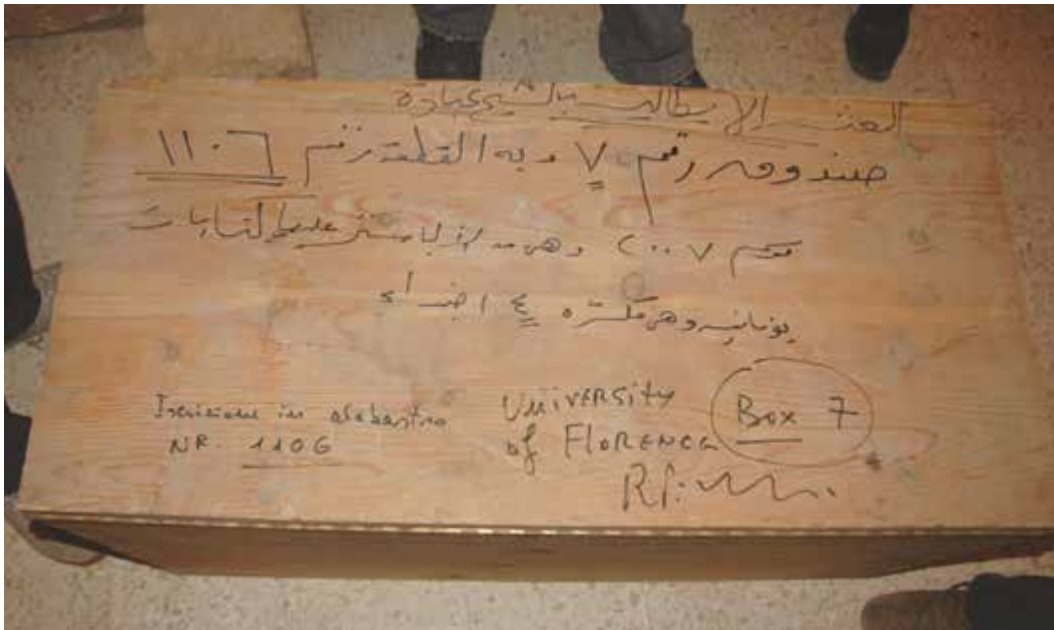 البعثة الإيطالية بالشيخ عبادة
صندوق رقم ٧ وبه القطعة رقم ١١٠٦
موسم ٢٠٠٧ وهى من الالباستر عليها كتابات
يونانيه وهى مكسره ٤ اجزاء
Iscrizione in alabastro
NR. 1106
University
of Florence
Box 7